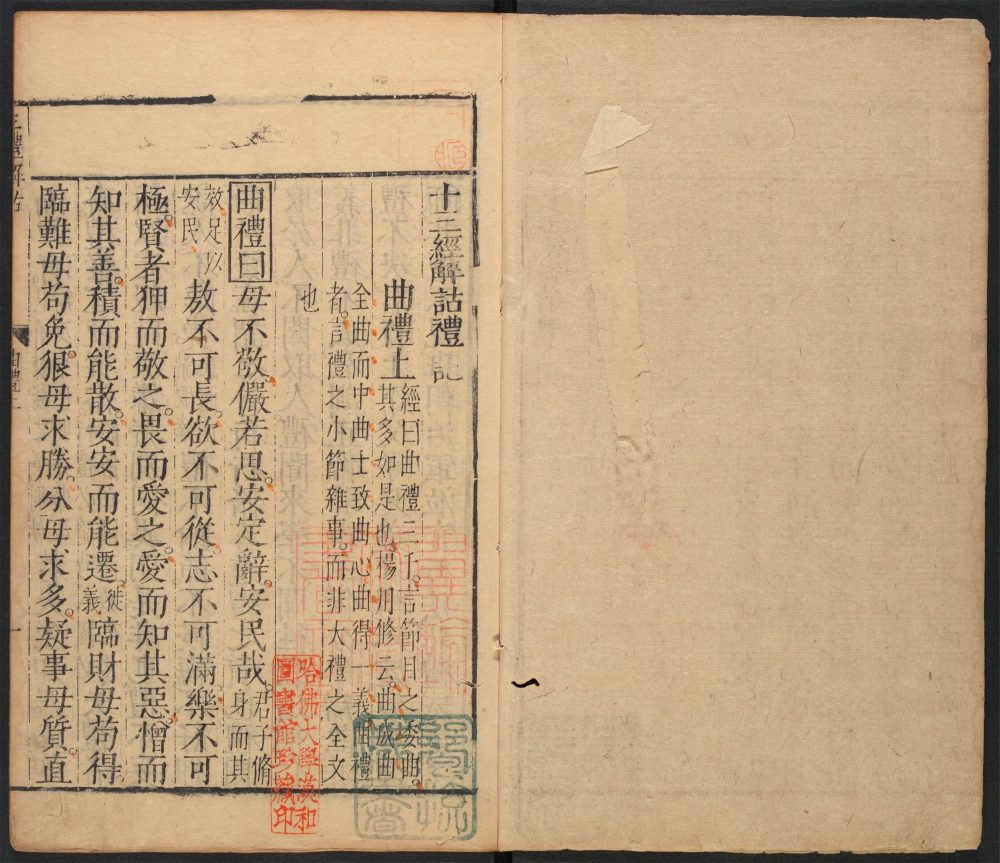 十三經解詁禮記
曲禮上
經曰曲禮三千言節目之委曲
其多如是也楊用修云曲成曲
全曲而中曲士致曲心曲得一義曲禮
者言禮之小節雜事而非大禮之全文
也
曲禮曰毋不敬儼若思安定辭安民哉君子脩
身而其
效足以
安民敖不可長欲不可從志不可滿樂不可
極賢者狎而敬之畏而愛之愛而知其惡憎而
知其善積而能散安安而能遷徙
義臨財毋苟得
臨難毋苟免狠毋求勝分毋求多疑事毋質直
曲禮上
一
哈佛大學漢和
圖書館珍藏印